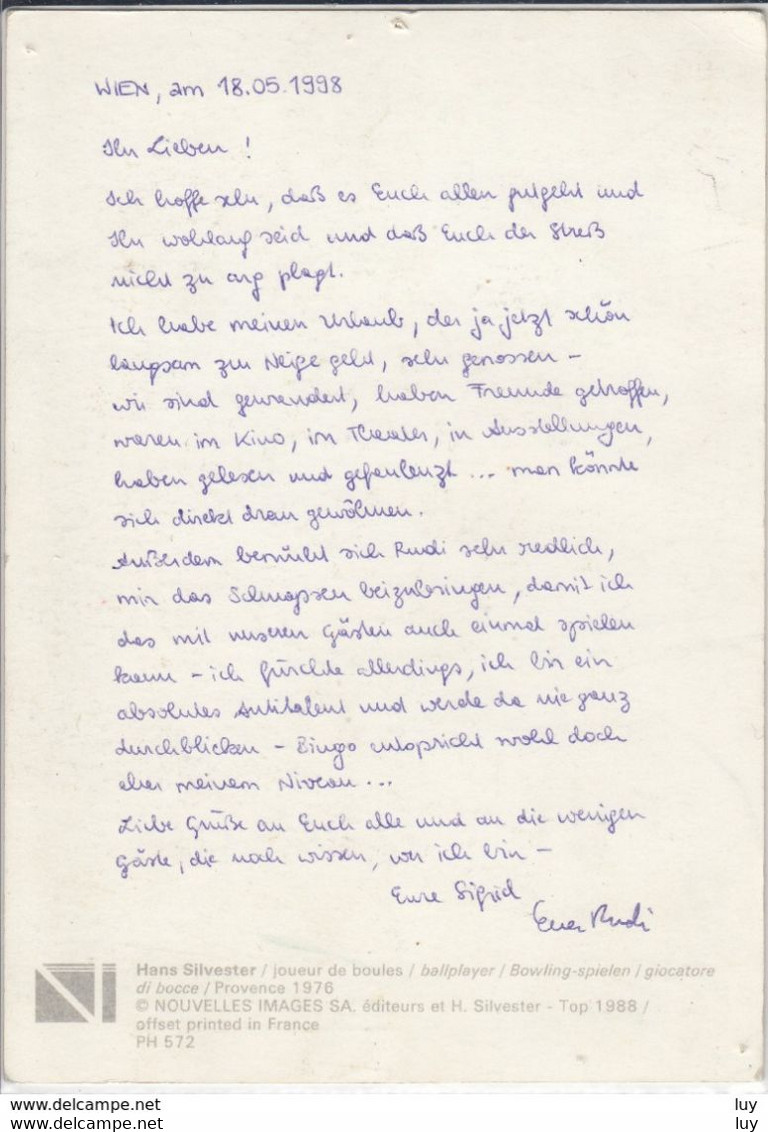 WIEN, am 18.05.1998
Ihr Lieben!
Ich hoffe sehr, daß es Euch allen gutgeht und
Ihr wohlauf seid und daß Euch der Streß
nicht zu arg plagt.
Ich habe meinen Urlaub, der ja jetzt schön
langsam zur Neige geht, sehr genossen –
wir sind gewandert, haben Freunde getroffen,
waren im Kino, im Theater, in Ausstellungen,
haben gelesen und gefaulenzt ... man könnte
sich direkt dran gewöhnen.
Außerdem bemüht sich Rudi sehr redlich,
mir das Schnapsen beizubringen, damit ich
das mit unseren Gästen auch einmal spielen
kann – ich fürchte allerdings, ich bin ein
absolutes Antitalent und werde da nie ganz
durchblicken – Bingo entspricht wohl doch
eher meinem Niveau ...
Liebe Grüße an Euch alle und an die wenigen
Gäste, die noch wissen, wer ich bin –
Eure Sigrid
Euer Rudi
Hans Silvester / joueur de boules / ballplayer / Bowling-spielen / giocatore
di bocce / Provence 1976
© NOUVELLES IMAGES SA. éditeurs et H. Silvester - Top 1988 /
offset printed in France
PH 572
www.delcampe.net luy
www.delcampe.net luy